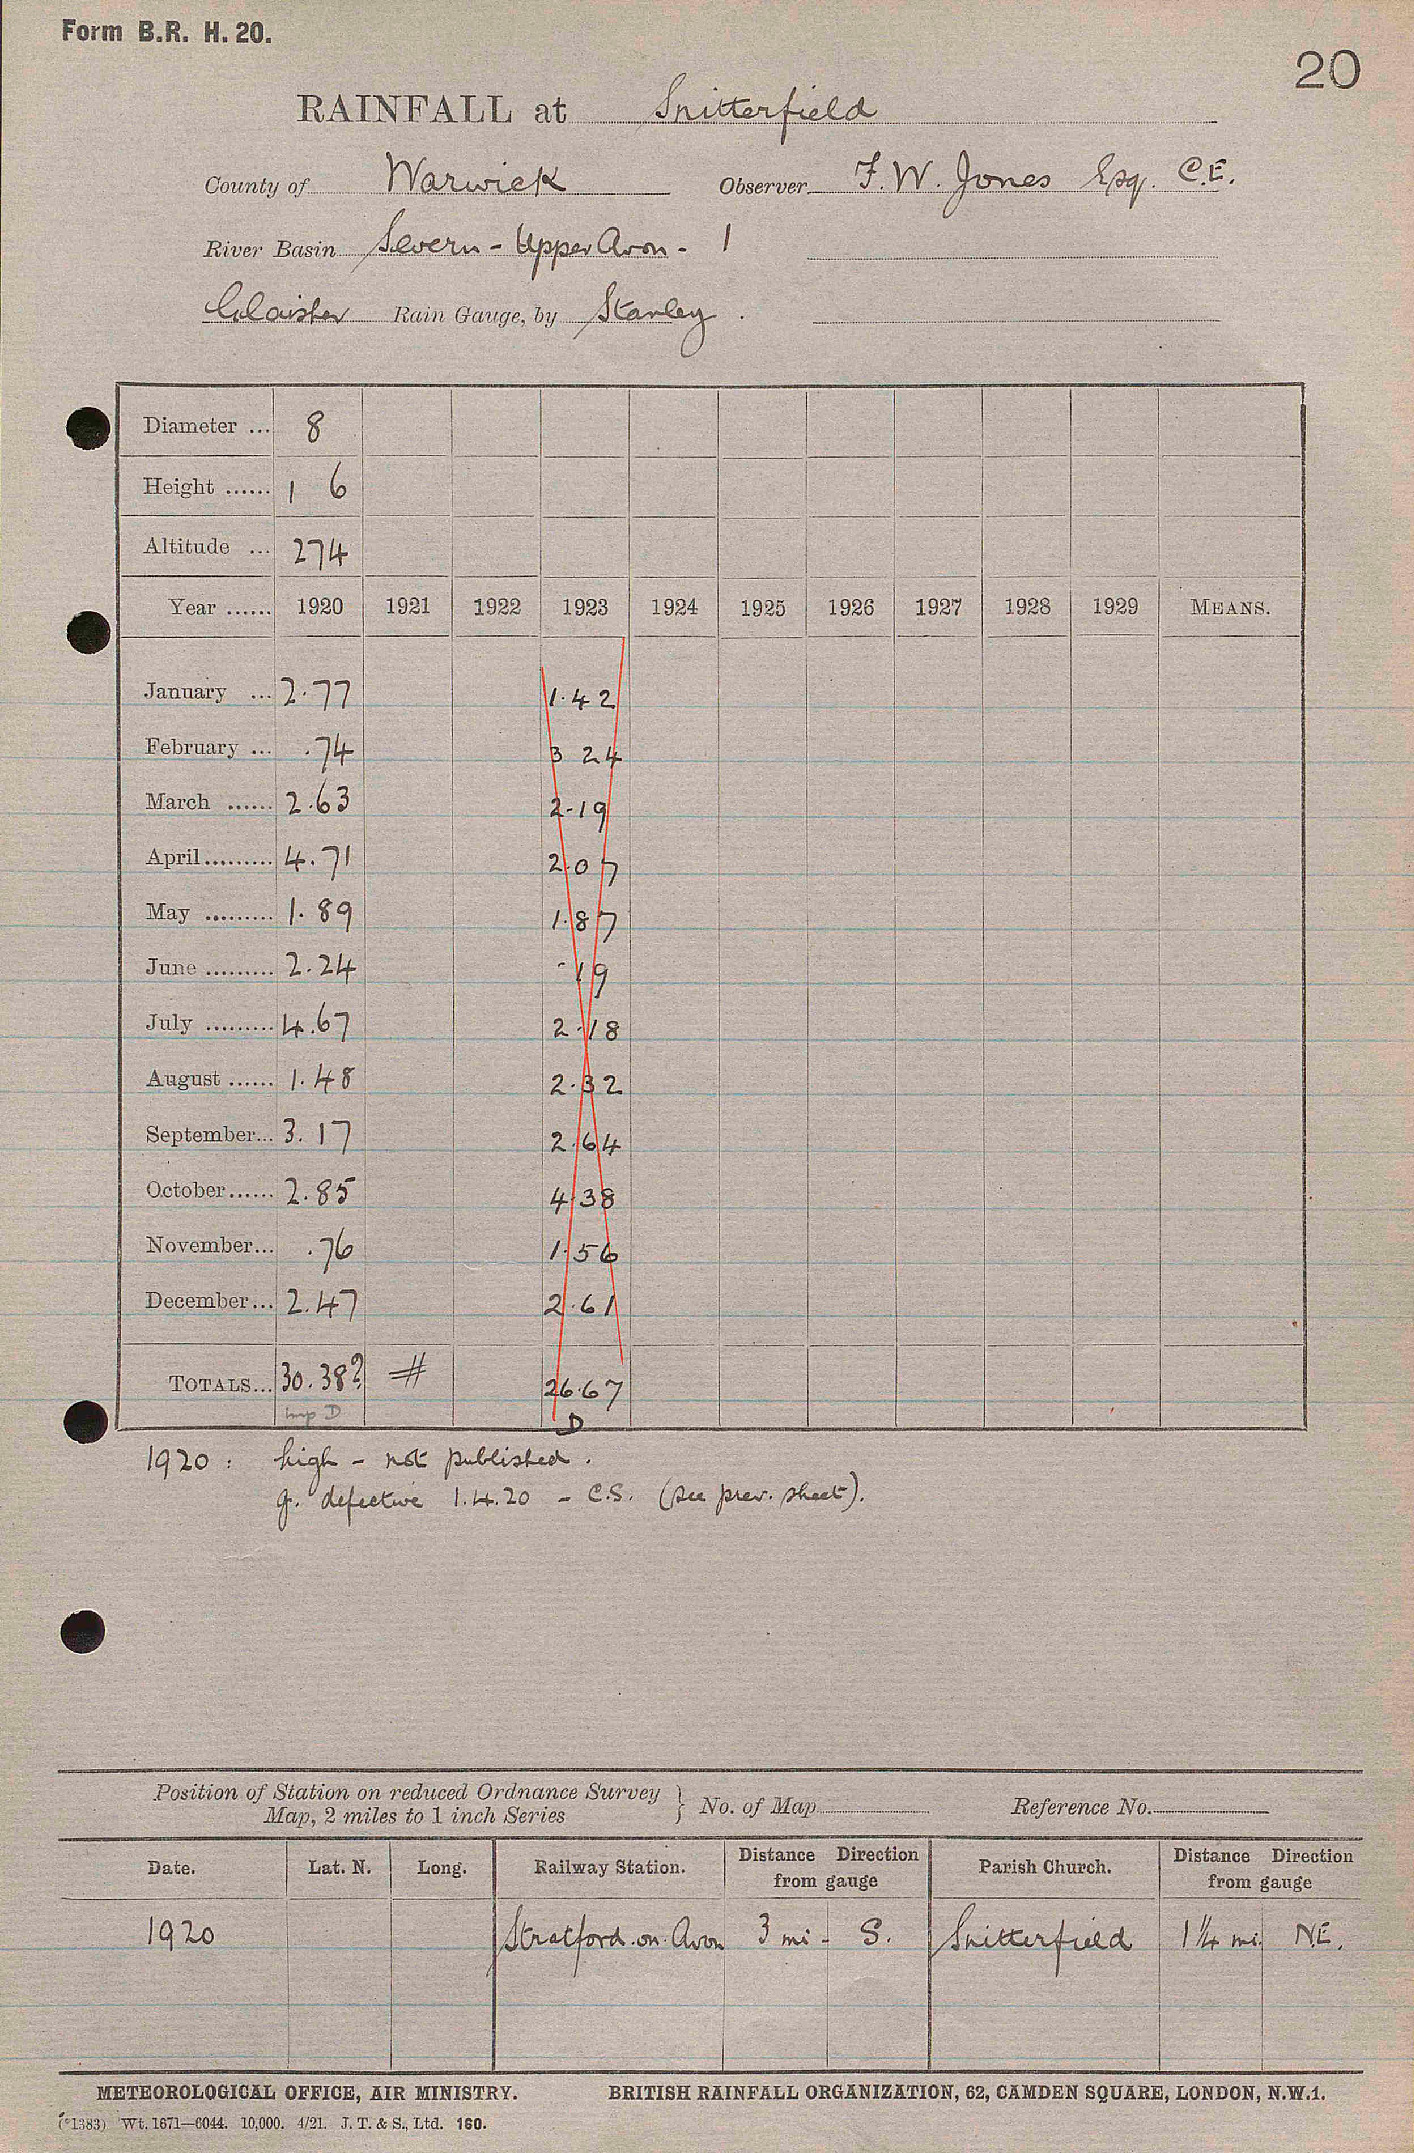 Form B.R. H. 20.
20
RAINFALL at Snitterfield
County of Warwick Observer F. W. Jones Esq. C.E.
River Basin Severn - Upper Avon - 1
Glaisher Rain Gauge, by Stanley .
Diameter ... 8
Height ...... 1 6
Altitude ... 274
Year ...... 1920 1921 1922 1923 1924 1925 1926 1927 1928 1929 MEANS.
January ... 2.77 1.42
February ... .74 3 24
March ...... 2.63 2.19
April......... 4.71 2.07
May ......... 1.89 1.87
June ......... 2.24 .19
July ......... 4.67 2.18
August ...... 1.48 2.32
September... 3.17 2.64
October...... 2.85 4.38
November... .76 1.56
December... 2.47 2.61
TOTALS... 30.38? # 26.67
imp D D
1920 : high - not published .
g. defective 1.4.20 - C.S. (see prev. sheet).
Position of Station on reduced Ordnance Survey
Map, 2 miles to 1 inch Series } No. of Map Reference No.
Date. Lat. N. Long. Railway Station. Distance Direction from gauge Parish Church. Distance Direction from gauge
1920 Stratford.on.Avon 3 mi - S. Snitterfield 1 1/4 mi. N.E.
METEOROLOGICAL OFFICE, AIR MINISTRY. BRITISH RAINFALL ORGANIZATION, 62, CAMDEN SQUARE, LONDON, N.W.1.
(*1383) Wt. 1671—6044. 10,000. 4/21. J. T. & S., Ltd. 160.